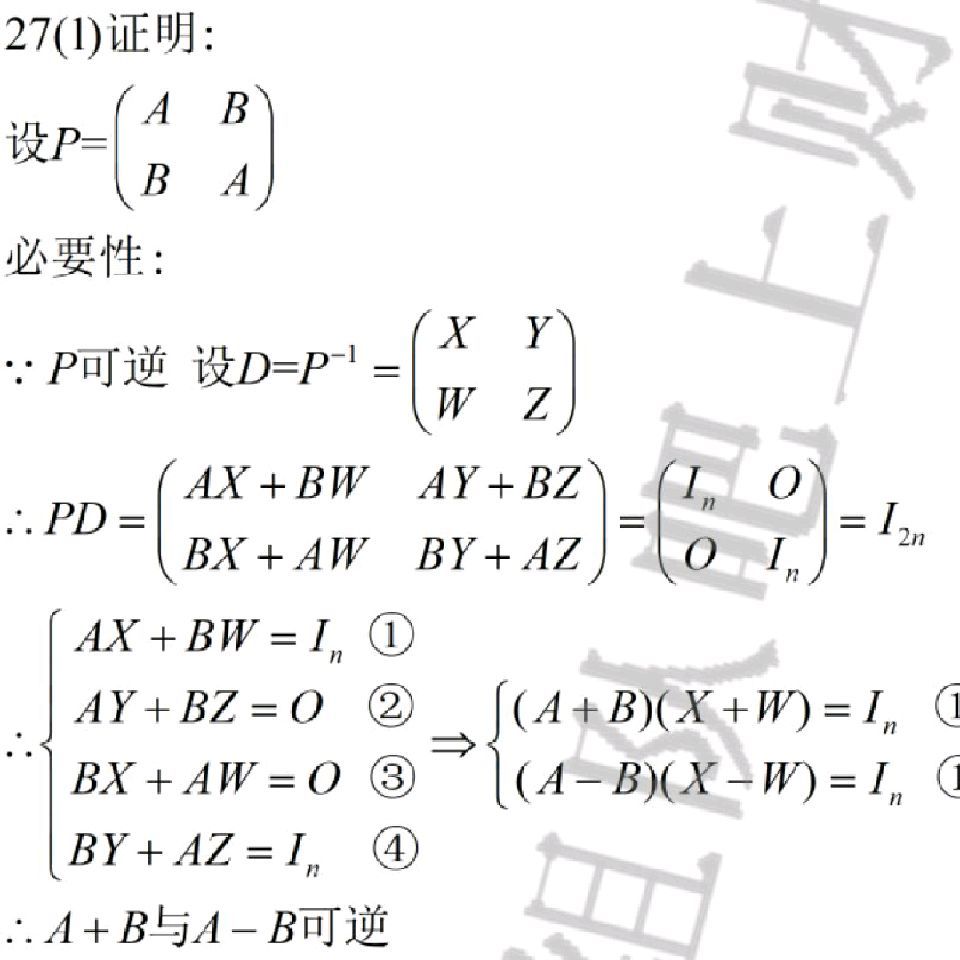 27(1)证明:
设P=(A B
B A)
必要性:
∵ P可逆 设D=P⁻¹ = (X Y
W Z)
∴ PD = (AX + BW AY + BZ
BX + AW BY + AZ) = (Iₙ O
O Iₙ) = I₂ₙ
∴ { AX + BW = Iₙ ①
AY + BZ = O ②
BX + AW = O ③
BY + AZ = Iₙ ④
⇒ { (A + B)(X + W) = Iₙ
(A − B)(X − W) = Iₙ
∴ A + B与A − B可逆